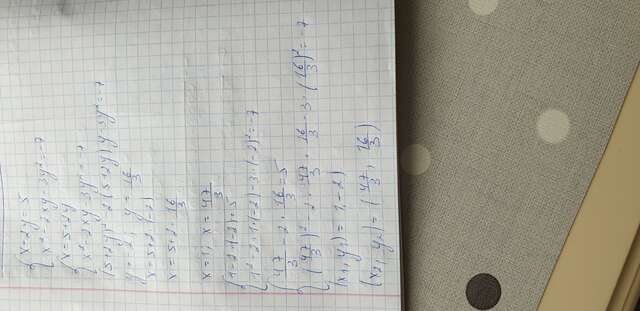 { x-2y=5
{ x²-2xy-3y²=-7
{ x=5+2y
{ x²-2xy-3y²=-7
(5+2y)²-2(5+2y)y-3y²=-7
y=-2, y=16/3
x=5+2·(-2)
x=5+2·16/3
x=1, x=47/3
{ 1-2·(-2)=5
{ 1²-2·1·(-2)-3·(-2)²=-7
{ 47/3-2·16/3=5
{ (47/3)²-2·47/3·16/3-3·(16/3)²=-7
(x₁,y₁)=(1,-2)
(x₂,y₂)=(47/3,16/3)